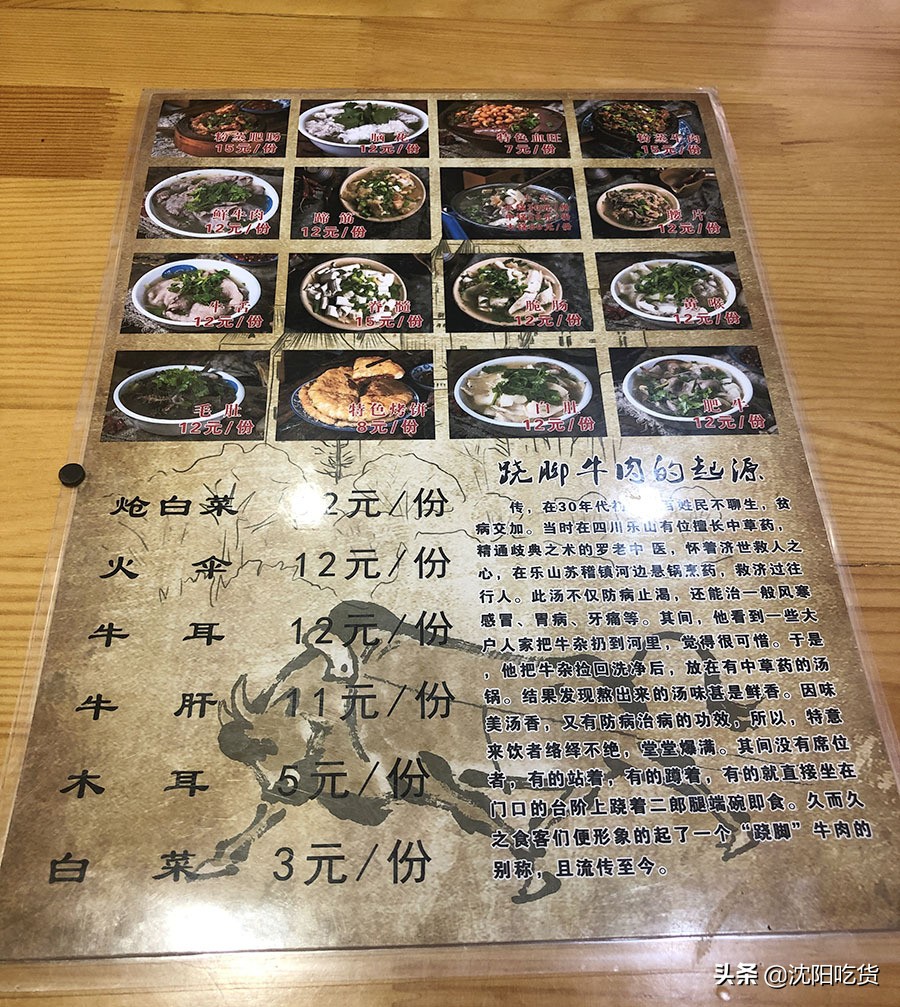 粉蒸肥肠
15元/份
脑花
12元/份
特色血旺
7元/份
粉蒸牛肉
15元/份
鲜牛肉
12元/份
蹄筋
12元/份
12元/份
牛舌
12元/份
脊髓
15元/份
脆肠
12元/份
黄喉
12元/份
毛肚
12元/份
特色烤饼
8元/份
白肚
12元/份
肥牛
12元/份
炝白菜 2元/份
火伞 12元/份
牛耳 12元/份
牛肝 11元/份
木耳 5元/份
白菜 3元/份
跷脚牛肉的起源
传，在30年代 百姓民不聊生，贫
病交加。当时在四川乐山有位擅长中草药，
精通歧典之术的罗老中 医，怀着济世救人之
心，在乐山苏稽镇河边悬锅烹药，救济过往
行人。此汤不仅防病止渴，还能治一般风寒
感冒、胃病、牙痛等。其间，他看到一些大
户人家把牛杂扔到河里，觉得很可惜。于是
，他把牛杂捡回洗净后，放在有中草药的汤
锅。结果发现熬出来的汤味甚是鲜香。因味
美汤香，又有防病治病的功效，所以，特意
来饮者络绎不绝，堂堂爆满。其间没有席位
者，有的站着，有的蹲着，有的就直接坐在
门口的台阶上跷着二郎腿端碗即食。久而久
之食客们便形象的起了一个“跷脚”牛肉的
别称，且流传至今。
头条 @沈阳吃货